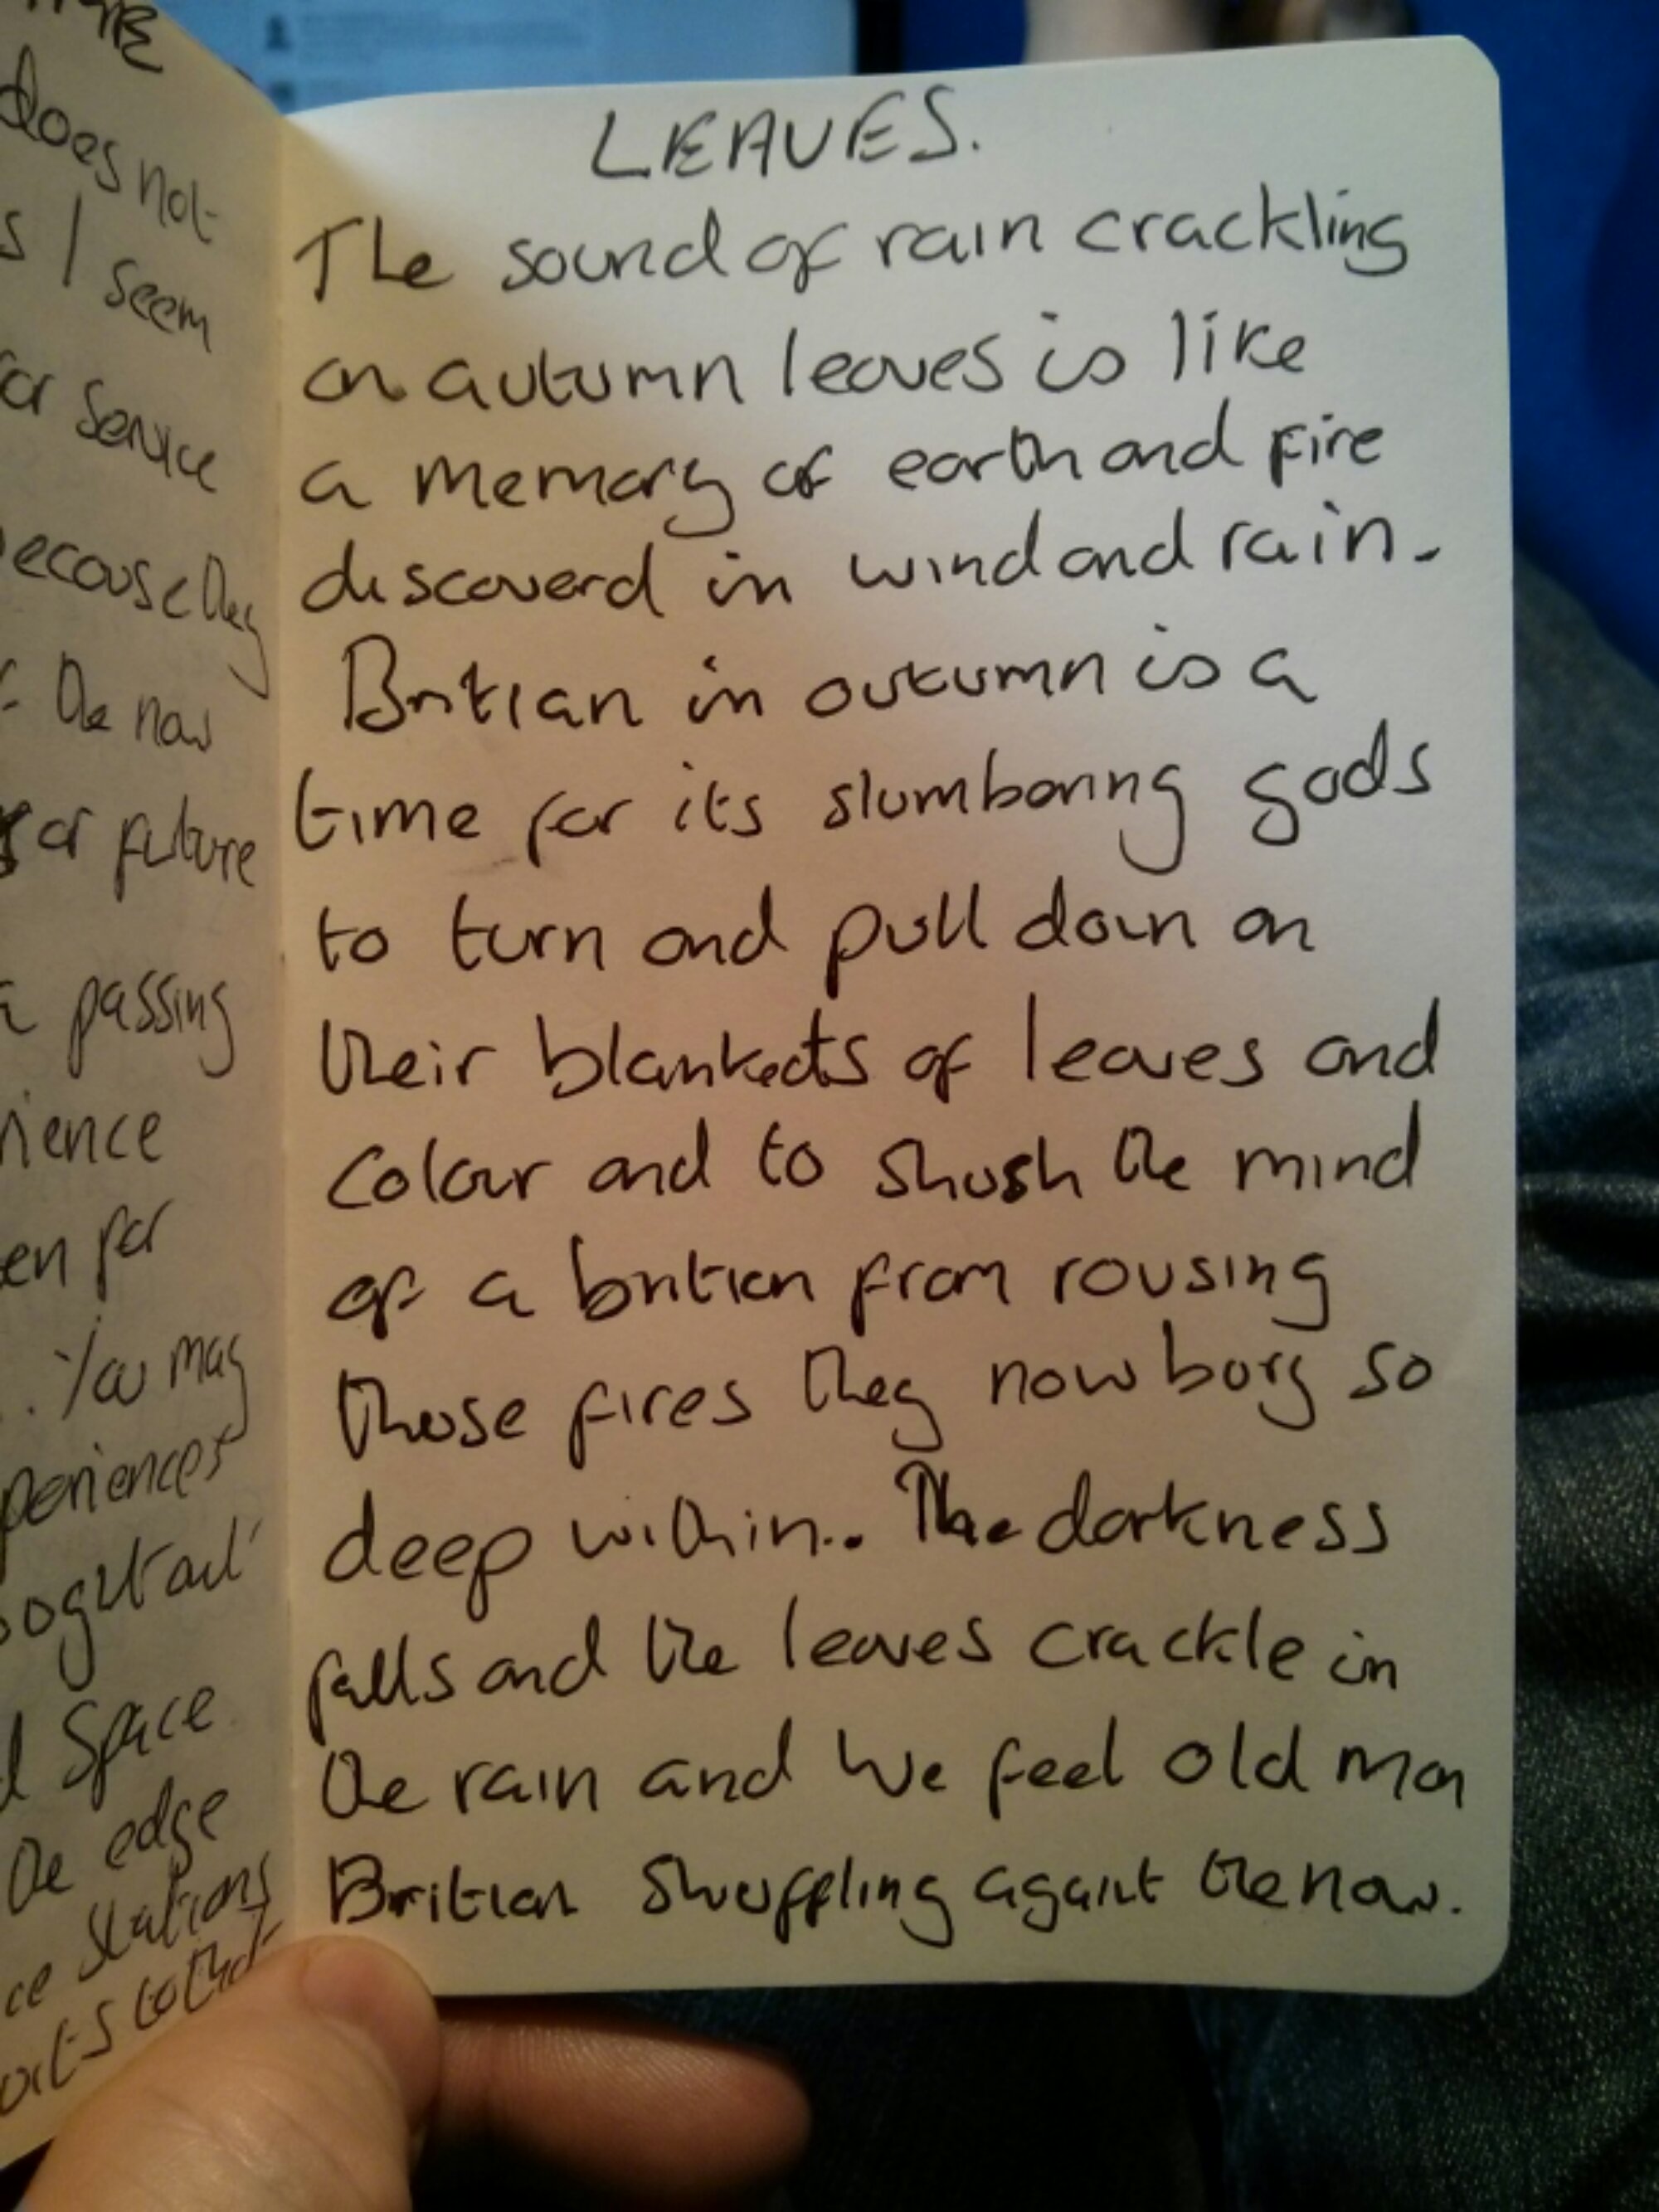 does not
s I seem
or service
ecause they
the now
or future
a passing
rience
en for
. You may
periences
Space
the edge
ce stations
LEAVES.
The sound of rain crackling
on autumn leaves is like
a memory of earth and fire
discoverd in wind and rain.
Britian in autumn is a
time for its slumbering gods
to turn and pull down on
their blankets of leaves and
colour and to shush the mind
of a britian from rousing
those fires they now bury so
deep within.. The darkness
falls and the leaves crackle in
the rain and we feel old man
Britian shuffling against the now.